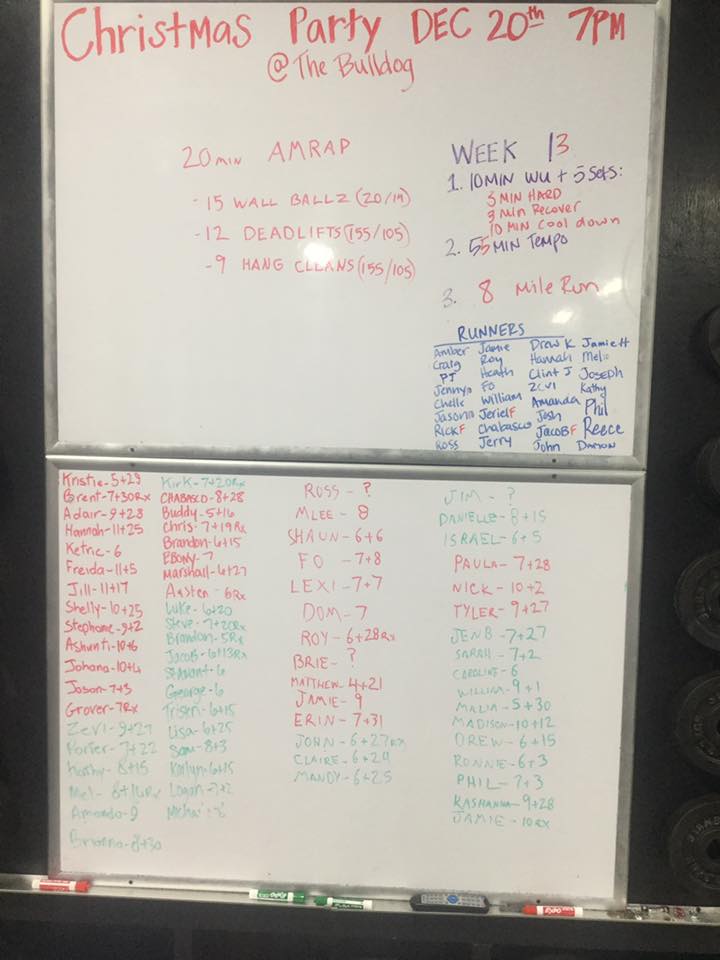 Christmas Party DEC 20th 7PM
@ The Bulldog
20 min AMRAP
- 15 WALL BALLZ (20/14)
- 12 DEADLIFTS (155/105)
- 9 HANG CLEANS (155/105)
WEEK 13
1. 10MIN WU + 5 Sets:
3 MIN HARD
3 Min Recover
10 MIN Cool down
2. 55 MIN Tempo
3. 8 Mile Run
RUNNERS
Amber Jamie Drew K Jamie H
Craig Roy Hannah Mel
PJ Heath Clint J Joseph
Jenny FO ZEVI Kathy
Chelle William Amanda Phil
Jason Jeriel F Josh Reece
Rick F Chabasco Jacob F Damon
Ross Jerry John
Kristie - 5+29
Brent - 7+30Rx
Adair - 9+28
Hannah - 11+25
Ketric - 6
Freida - 11+5
Jill - 11+17
Shelly - 10+25
Stephanie - 9+2
Ashunti - 10+6
Johana - 10+4
Jason - 7+3
Grover - 7Rx
Zevi - 9+27
Porter - 7+22
Kathy - 8+15
Mel - 8+16Rx
Amanda - 9
Brianna - 8+30
Kirk - 7+20Rx
CHABASCO - 8+28
Buddy - 5+16
Chris - 7+19Rx
Brandon - 6+15
EBONY - 7
Marshall - 6+27
Austen - 6Rx
Luke - 6+20
Steve - 7+20Rx
Brandon - 5Rx
Jacob - 6+13Rx
George - 6
Tristen - 6+15
Lisa - 6+25
Sam - 8+3
Kaitlyn - 6+15
Logan - 7+2
ROSS - ?
MLEE - 8
SHAUN - 6+6
FO - 7+8
LEXI - 7+7
DOM - 7
ROY - 6+28Rx
BRIE - ?
MATTHEW - 4+21
JAMIE - 9
ERIN - 7+31
JOHN - 6+27Rx
CLAIRE - 6+24
MANDY - 6+25
JIM - ?
DANIELLE - 8+15
ISRAEL - 6+5
PAULA - 7+28
NICK - 10+2
TYLER - 9+27
JEN B - 7+27
SARAH - 7+2
CAROLINE - 6
WILLIAM - 9+1
MALIA - 5+30
MADISON - 10+12
DREW - 6+15
RONNIE - 6+3
PHIL - 7+3
KASHANNA - 9+28
JAMIE - 10Rx